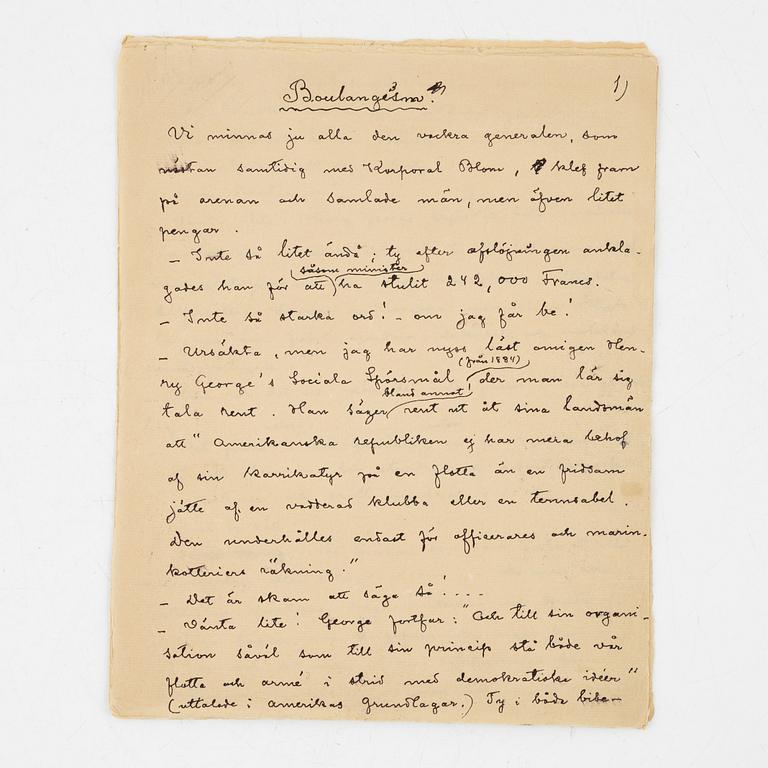 Boulangism? 1)
Vi minnas ju alla den vackra generalen, som
nästan samtidig med Korporal Blom, klef fram
på arenan och samlade män, men äfven litet
pengar.
– Inte så litet ändå; ty efter afslöjningen ankla-
såsom minister
gades han för att ha stulit 242,000 Francs.
– Inte så starka ord! – om jag får be!
– Ursäkta, men jag har nyss läst omigen Hen-
(från 1884)
ry George's Sociala Spörsmål der man lär sig
bland annat!
tala rent. Han säger rent ut åt sina landsmän
att "Amerikanska republiken ej har mera behof
af sin karrikatyr på en flotta än en fridsam
jätte af en vadderad klubba eller en tennsabel.
Den underhålles endast för officerares och marin-
kotteriers räkning."
– Det är skam att säga så!....
– Vänta lite! George fortfar: "Och till sin organi-
sation såväl som till sin princip stå både vår
flotta och armé i strid med demokratiska idéer"
(uttalade i Amerikas Grundlagar.) Ty i båda